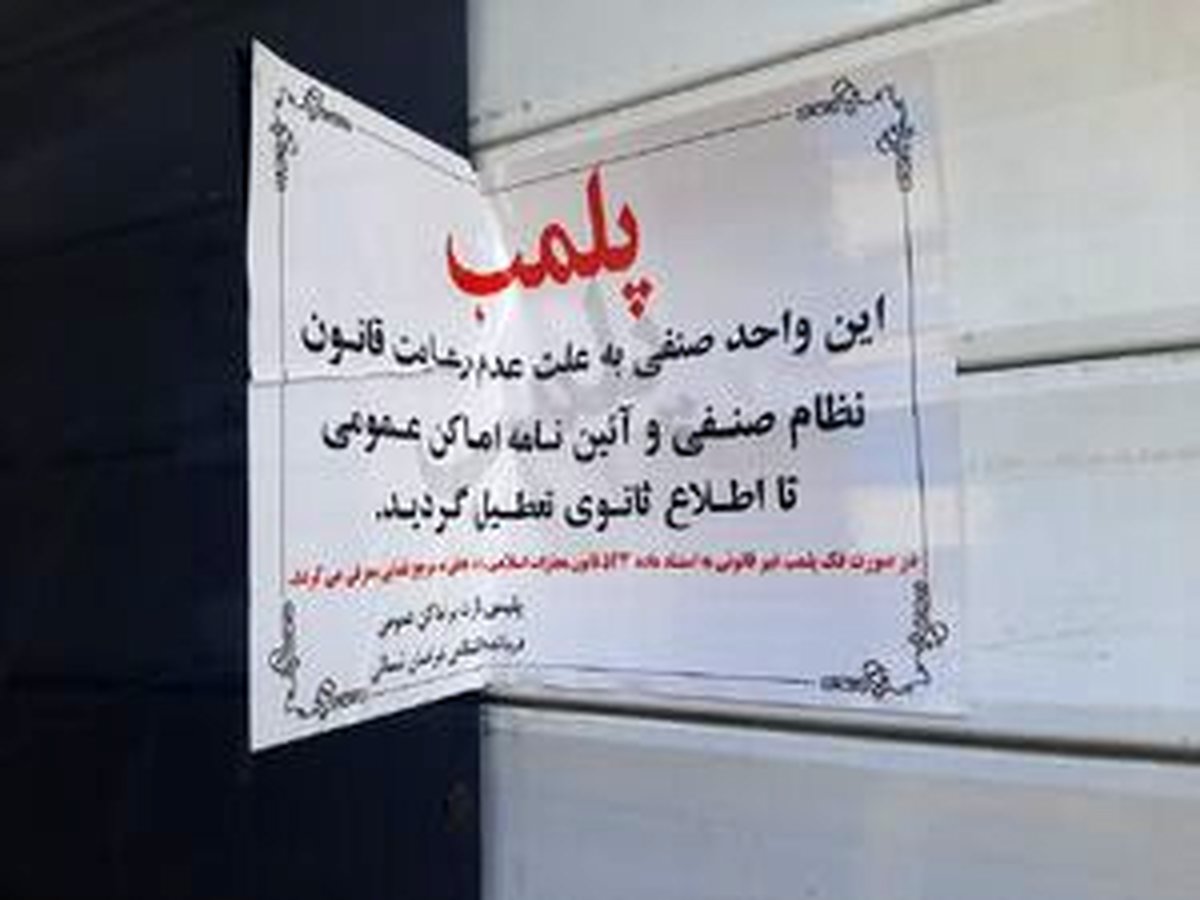 پلمب
این واحد صنفی به علت عدم رعایت قانون
نظام صنفی و آئین نامه اماکن عمومی
تا اطلاع ثانوی تعطیل گردید.
در صورت فک پلمب غیر قانونی به استناد ماده قانون مجازات اسلامی به مرجع قضایی معرفی می گردد.
پلیس نظارت بر اماکن عمومی
فرماندهی انتظامی خراسان شمالی